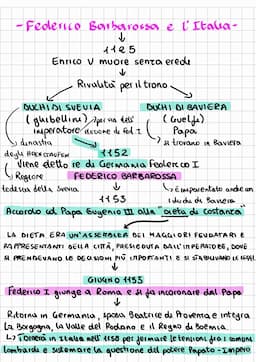 - Federico Barbarossa e l'Italia -
1125
Enrico V muore senza eredi
Rivalità per il trono
DUCHI DI SVEVIA
DUCHI DI BAVIERA
(ghibellini)
(guelfi)
imperatore
Papa
dinastia
si trovano in Baviera
degli HOHENSTAUFEN
1152
viene eletto re di Germania Federico I
Regione
FEDERICO BARBAROSSA
tedesca della Svevia
è imparentato anche con
i duchi di Baviera
1153
Accordo col Papa Eugenio III alla "dieta di Costanza"
LA DIETA ERA UN'ASSEMBLEA DEI MAGGIORI FEUDATARI E
RAPPRESENTANTI DELLA CITTÀ, PRESIEDUTA DALL'IMPERATORE, DOVE
SI PRENDEVANO LE DECISIONI PIÙ IMPORTANTI E SI STABILIVANO LE LEGGI.
GIUGNO 1155
Federico I giunge a Roma e si fa incoronare dal Papa
Ritorna in Germania, sposa Beatrice di Provenza e integra
La Borgogna, la Valle del Rodano e il Regno di Boemia.
Tornerà in Italia nell'1158 per fermare le tensioni fra i comuni
lombardi e sistemare la questione del potere Papato - Impero